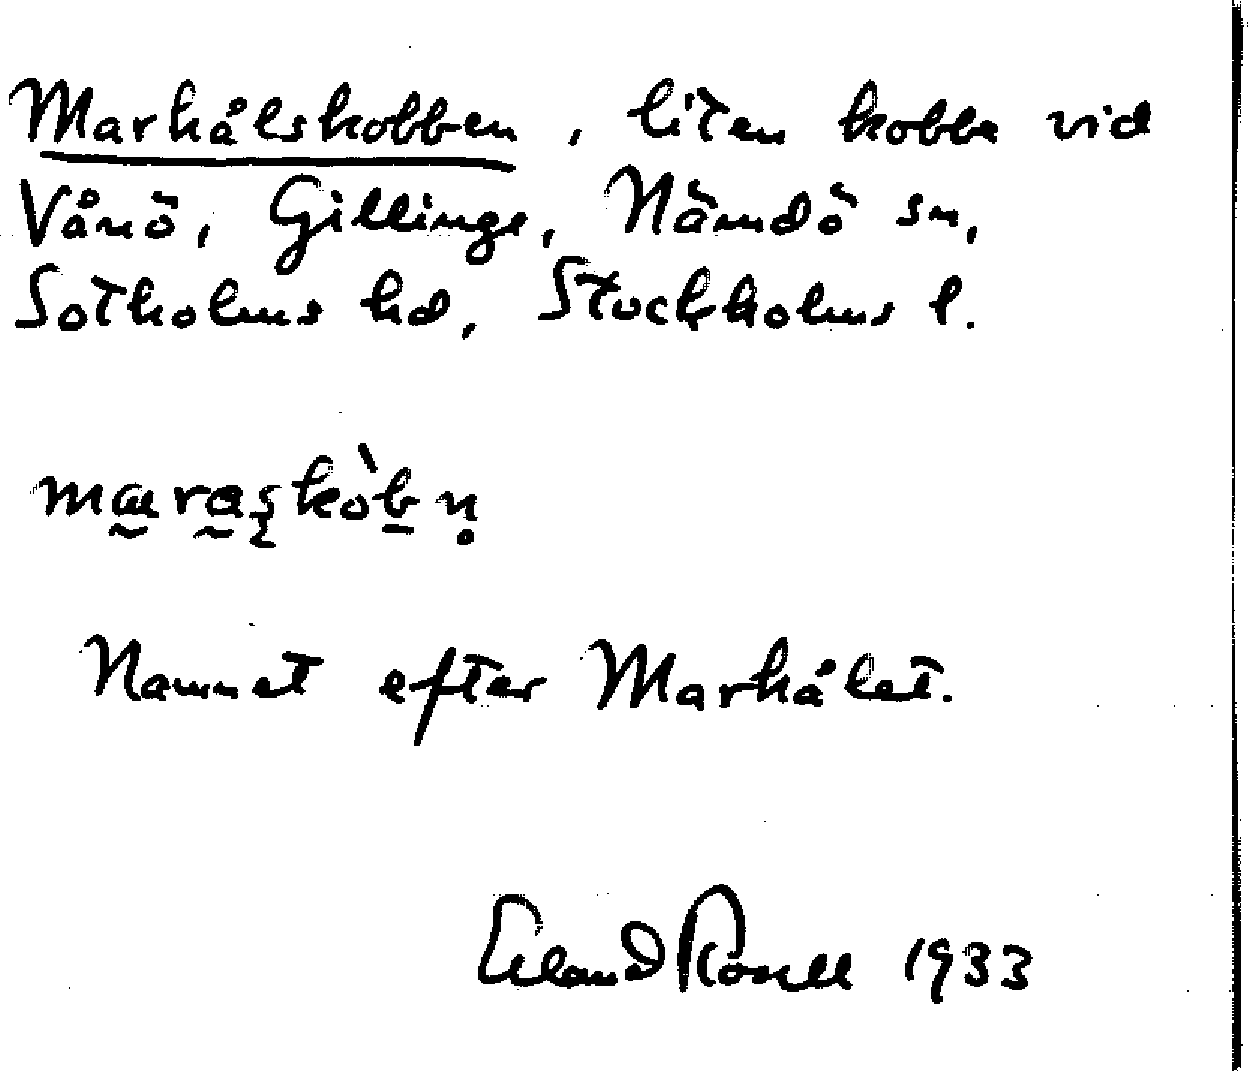 Marhålskobben, liten kobbe vid
Vånö, Gillinge, Nämdö sn,
Sotholms hd, Stockholms l.
mæraskòbn̥
Namnet efter Marhålet.
Erland Rosell 1933